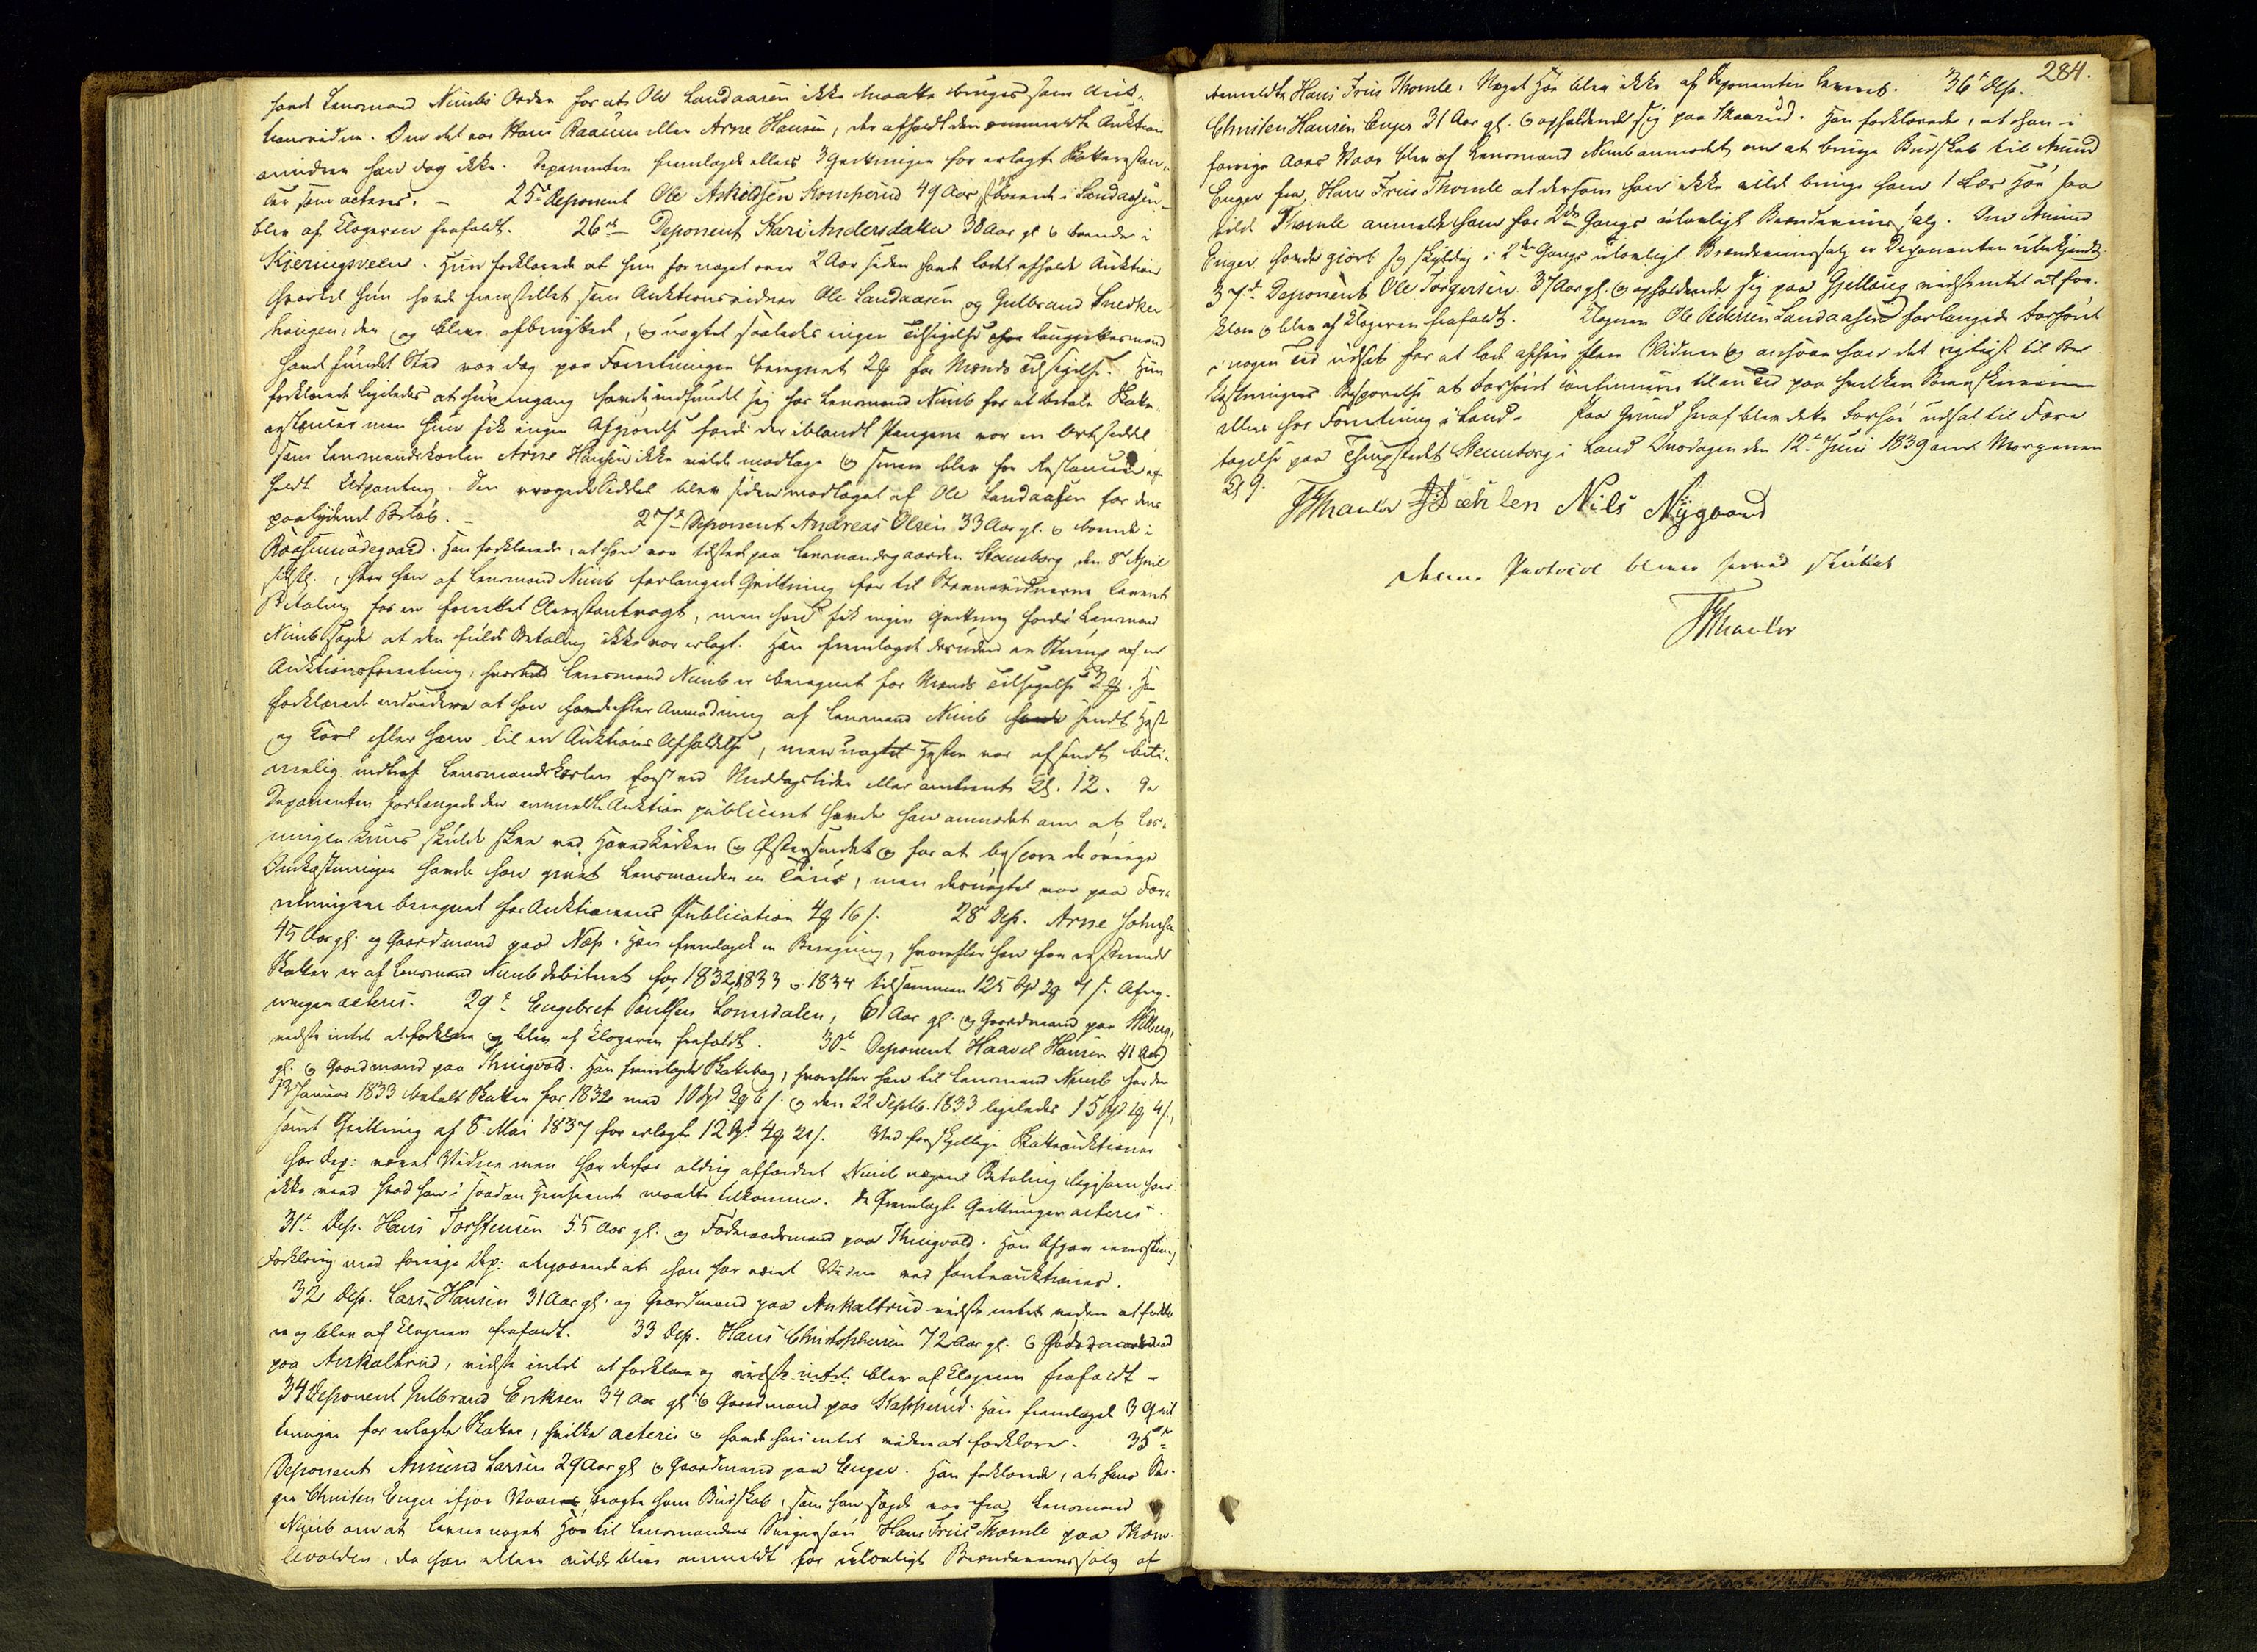 havt Lensmand Nimbs Orden for at Ole Landaasen ikke maatte bruges som Auk-
tionsvidne. Om det var Hans Raaum eller Arne Hansen, der afholdt den ommeldte Auktion
mindes han dog ikke. Deponenten fremlagde ellers 3 Qvittinger for erlagte Skatterestan-
cer som acteres. - 25de Deponent Ole Askildsen Komperud 49 Aar, boende i Landaasen
blev af Klageren frafaldt. 26de Deponent Kari Andersdatter 38 Aar gl. og boende i
Kjeringsveen. Hun forklarede at hun for noget over 2 Aar siden havde ladet afholde Auktion
hvortil hun havde fremstillet som Auktionsvidner Ole Landaasen og Gulbrand Snedker
haugen, der og bleve afbenyttede, og uagtet saaledes ingen Tilsigelse
havde fundet Sted var dog paa Forretningen beregnet 2 for Mænds Tilsigelse. Hun
forklarede ligeledes at hun engang havde indfundet sig hos Lensmand Nimb for at betale Skatte-
restancer men hun fik ingen Afgjørelse fordi der iblandt Pengene var en Ortseddel
som Lensmandskarlen Arne Hansen ikke vilde modtage og senere blev for Restancen af-
holdt Udpantning. Den vragede Seddel blev siden modtaget af Ole Landaasen for dens
paalydende Beløb. - 27de Deponent Andreas Olsen 33 Aar gl. og boende i
Raasumødegaard. Han forklarede, at han var tilstede paa Lensmandsgaarden Stensborg den 8de April
sidstl., hvor han af Lensmand Nimb forlangede Qvittning for til Stævnevidnerne leveret
Betaling for en forrettet Arrestantvagt, men han fik ingen Qvittning fordi Lensmand
Nimb sagde at den fulde Betaling ikke var erlagt. Han fremlagde desuden en Stump af en
Auktionsforretning, hvorved Lensmand Nimb er beregnet for Mænds Tilsigelse 2. Han
forklarede endvidere at han havde efter Anmodning af Lensmand Nimb sendt Hest
og Karl efter ham til en Auktions Afholdelse, men uagtet Hesten var afsendt beti-
melig indtraf Lensmandskarlen først ved Middagstider eller omtrent Kl. 12. Da
Deponenten forlangede den ommeldte Auktion publiceret havde han anmodet om at Læs-
ningen kuns skulde skee ved Hovedkirken og Østersindet og for at bespare de øvrige
Omkostninger havde han givet Lensmanden en, men desuagtet var paa For-
retningen beregnet for Auktionens Publication 4 16 s. 28de Dep. Arne Johnsen
45 Aar gl. og Gaardmand paa Næss. Han fremlagde en Beregning, hvorefter han for resterende
Skatter er af Lensmand Nimb debiteret for 1832, 1833 og 1834 tilsammen 125 Spd 2 4 s. Afreg-
ningen acteres. 29de Engebret Paulsen Lomsdalen, 61 Aar gl. og Gaardmand paa
vidste intet at forklare og blev af Klageren frafaldt. 30te Deponent Haavel Hansen 41 Aar
gl. og Gaardmand paa Thingvold. Han fremlagde Skattebog, hvorefter han til Lensmand Nimb har den
13 Januar 1833 betalt Skatten for 1832 med 10 Spd 2 6 s. og den 22 Septb. 1833 ligeledes 15 Spd 1 4 s,
samt Qvittning af 8 Mai 1837 for erlagte 12 Spd 4 21 s. Ved forskjellige Skatteauktioner
har Dep: været Vidne men har derfor aldrig affordret Nimb nogen Betaling ligesom han
ikke veed hvad han i saadan Henseende maatte tilkomme. De fremlagte Qvittninger acteres.
31te Dep. Hans Torstensen 55 Aar gl. og Føderaadsmand paa Thingvold. Han Afgav eensstem.
Forklaring med forrige Dep: angaaende at han har været Vidne ved Panteauktioner.
32 Dep. Lars Hansen 31 Aar gl. og Gaardmand paa Askaltrud vidste intet videre at forkla-
re og blev af Klageren frafaldt. 33 Dep. Hans Christophersen 72 Aar gl. og Føderaadsmand
paa Askaltrud, vidste intet at forklare og vidste intet blev af Klageren frafaldt -
34 Deponent Gulbrand Eriksen 34 Aar gl. og Gaardmand paa Kapperud. Han fremlagde 3 Qvit
teringer for erlagte Skatter, hvilke acteres og havde han intet videre at forklare. 35te
Deponent Amund Larsen 29 Aar gl. og Gaardmand paa Enger. Han forklarede, at hans
Christen Enger ifjor Vaar bragte ham Budskab, som han sagde var fra Lensmand
Nimb om at levere noget Høe til Lensmandens Svigersøn Hans Friis Thomle paa Thom-
levolden, da han ellers vilde blive anmeldt for ulovligt Brændeviinssalg af
284.
anmeldte Hans Friis Thomle. Noget Høe blev ikke af Deponenten leveret. 36te Dep.
Christen Hansen Enger 31 Aar gl. og opholdende sig paa Skaarud. Han forklarede, at han i
forrige Aars Vaar blev af Lensmand Nimb anmodet om at bringe Budskab til Amund
Enger fra Hans Friis Thomle at dersom han ikke vilde bringe ham 1 Læs Høe saa
vilde Thomle anmelde ham for 2den Gangs ulovligt Brændeviins salg. Om Amund
Enger havde gjort sig skyldig i 2den Gangs ulovligt Brændeviinssalg er Deponenten ubekjendt.
37te Deponent Ole Torgersen 37 Aar gl. og opholdende sig paa Gjellaug vidste intet at for-
klare og blev af Klageren frafaldt. Klageren Ole Pedersen Landaasen forlangede Forhøret
i nogen Tid udsat for at lade afhøre flere Vidner og ansaae han det rigtigst til Be-
kostningens Besparelse at Forhøret continueres til en Tid paa hvilken Sorenskriveren
ellers har Forretning i Land. - Paa Grund heraf blev dette Forhør udsat til Fore-
tagelse paa Thingstedet Stensborg i Land Onsdagen den 12te Juni 1839 om Morgenen
Kl 9.
Nils Nygaard
Denne Protocol bliver herved sluttet